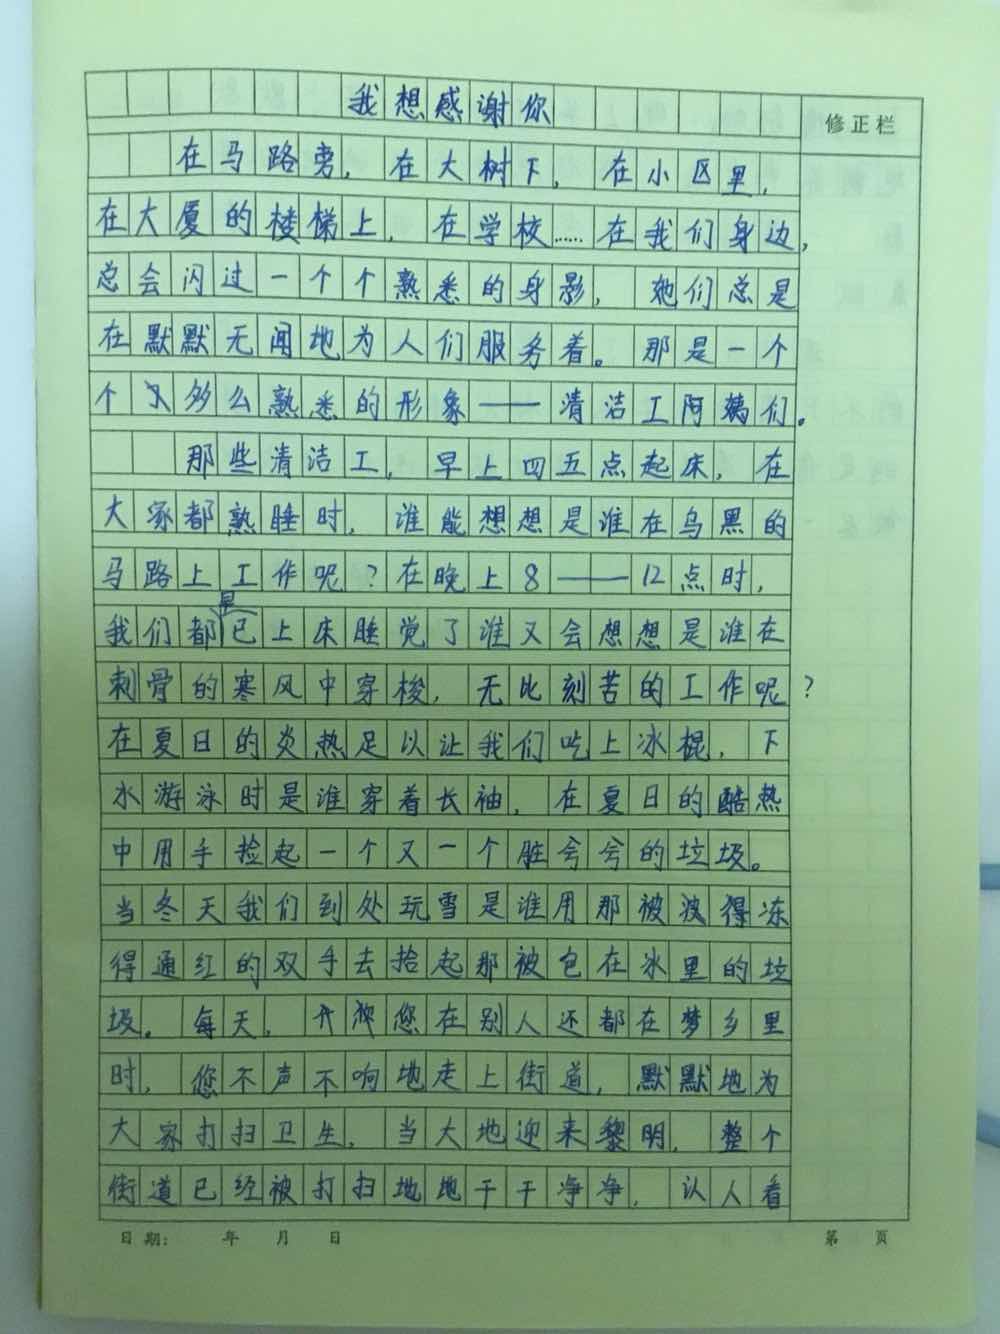 我想感谢你
修正栏
在马路旁，在大树下，在小区里，
在大厦的楼梯上，在学校……在我们身边，
总会闪过一个个熟悉的身影，她们总是
在默默无闻地为人们服务着。那是一个
个多么熟悉的形象——清洁工阿姨们。
那些清洁工，早上四五点起床，在
大家都熟睡时，谁能想想是谁在乌黑的
马路上工作呢？在晚上8——12点时，
我们都早已上床睡觉了谁又会想想是谁在
刺骨的寒风中穿梭，无比刻苦的工作呢？
在夏日的炎热足以让我们吃上冰棍，下
水游泳时是谁穿着长袖，在夏日的酷热
中用手捡起一个又一个脏兮兮的垃圾。
当冬天我们到处玩雪是谁用那被波得冻
得通红的双手去拾起那被包在冰里的垃
圾。每天，您在别人还都在梦乡里
时，您不声不响地走上街道，默默地为
大家打扫卫生，当大地迎来黎明，整个
街道已经被打扫地地干干净净，认人看
日期： 年 月 日 第 页